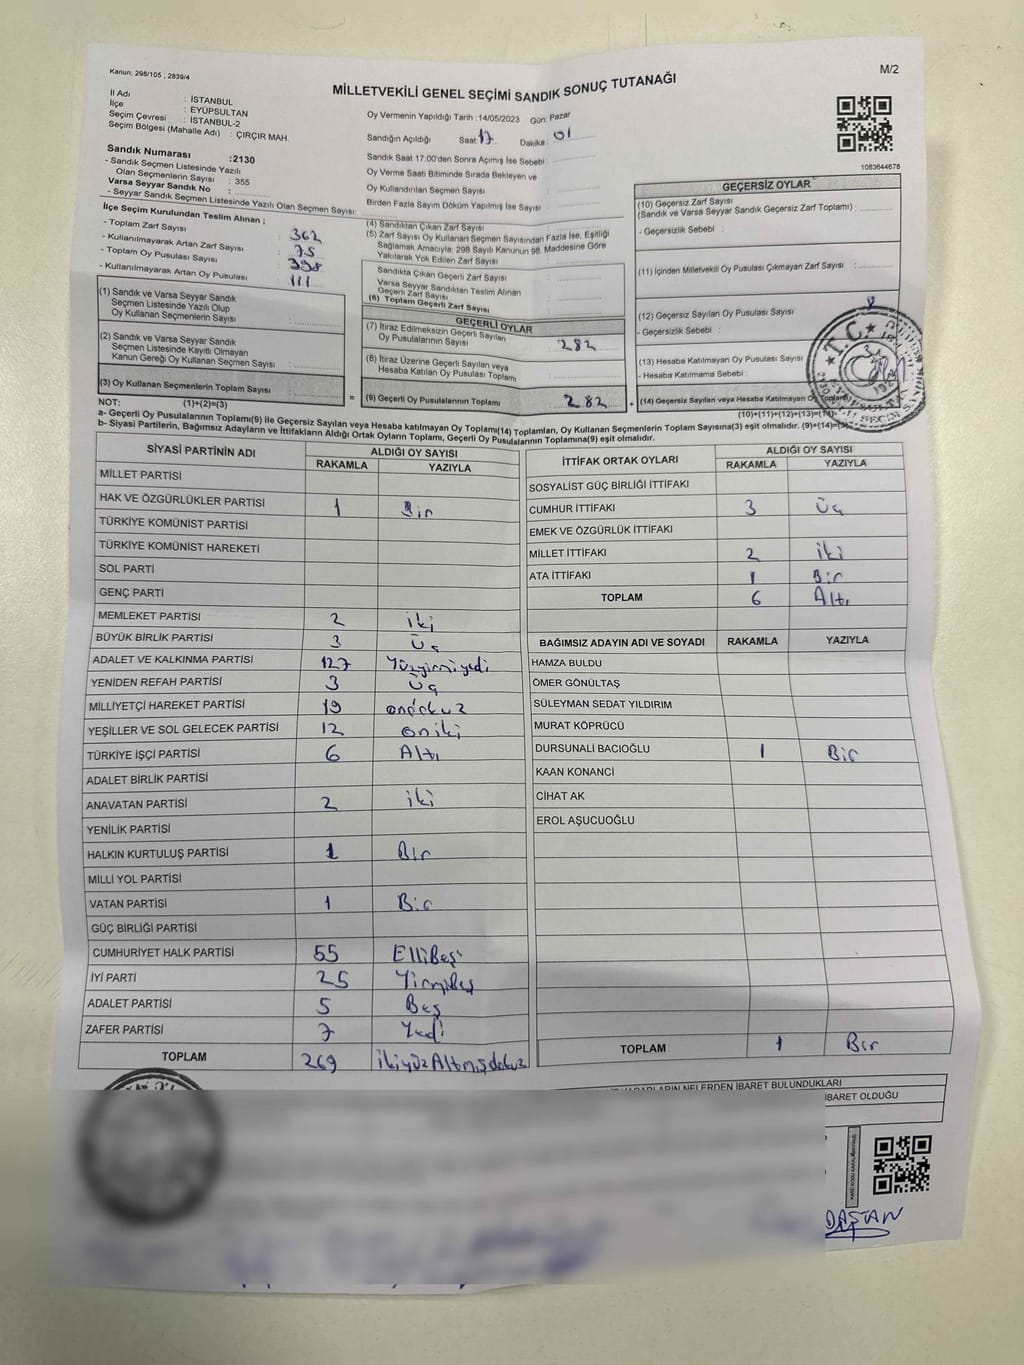 Kanun: 298/105 , 2839/4
MİLLETVEKİLİ GENEL SEÇİMİ SANDIK SONUÇ TUTANAĞI
M/2
İl Adı : İSTANBUL
İlçe : EYÜPSULTAN
Seçim Çevresi : İSTANBUL-2
Seçim Bölgesi (Mahalle Adı) : ÇIRÇIR MAH.
Sandık Numarası : 2130
- Sandık Seçmen Listesinde Yazılı
Olan Seçmenlerin Sayısı : 355
Varsa Seyyar Sandık No :
- Seyyar Sandık Seçmen Listesinde Yazılı Olan Seçmen Sayısı:
İlçe Seçim Kurulundan Teslim Alınan :
- Toplam Zarf Sayısı 362
- Kullanılmayarak Artan Zarf Sayısı 75
- Toplam Oy Pusulası Sayısı 398
- Kullanılmayarak Artan Oy Pusulası 111
(1) Sandık ve Varsa Seyyar Sandık
Seçmen Listesinde Yazılı Olup
Oy Kullanan Seçmenlerin Sayısı :
(2) Sandık ve Varsa Seyyar Sandık
Seçmen Listesinde Kayıtlı Olmayan
Kanun Gereği Oy Kullanan Seçmen Sayısı :
(3) Oy Kullanan Seçmenlerin Toplam Sayısı
Oy Vermenin Yapıldığı Tarih : 14/05/2023 Gün: Pazar
Sandığın Açıldığı Saat: 17 Dakika: 01
Sandık Saat 17.00'den Sonra Açımış İse Sebebi :
Oy Verme Saati Bitiminde Sırada Bekleyen ve
Oy Kullandırılan Seçmen Sayısı
Birden Fazla Sayım Döküm Yapılmış İse Sayısı
(4) Sandıktan Çıkan Zarf Sayısı
(5) Zarf Sayısı Oy Kullanan Seçmen Sayısından Fazla İse, Eşitliği
Sağlamak Amacıyla; 298 Sayılı Kanunun 98. Maddesine Göre
Yakılarak Yok Edilen Zarf Sayısı
Sandıkta Çıkan Geçerli Zarf Sayısı
Varsa Seyyar Sandıktan Teslim Alınan
Geçerli Zarf Sayısı
(6) Toplam Geçerli Zarf Sayısı
GEÇERLİ OYLAR
(7) İtiraz Edilmeksizin Geçerli Sayılan
Oy Pusulalarının Sayısı 282
(8) İtiraz Üzerine Geçerli Sayılan veya
Hesaba Katılan Oy Pusulası Toplamı
= (9) Geçerli Oy Pusulalarının Toplamı 282 +
1083644678
GEÇERSİZ OYLAR
(10) Geçersiz Zarf Sayısı
(Sandık ve Varsa Seyyar Sandık Geçersiz Zarf Toplamı) :
- Geçersizlik Sebebi :
(11) İçinden Milletvekili Oy Pusulası Çıkmayan Zarf Sayısı :
(12) Geçersiz Sayılan Oy Pusulası Sayısı
- Geçersizlik Sebebi :
(13) Hesaba Katılmayan Oy Pusulası Sayısı
- Hesaba Katılmama Sebebi :
(14) Geçersiz Sayılan veya Hesaba Katılmayan Oy Toplamı
T.C.
NOT: (1)+(2)=(3)
(10)+(11)+(12)+(13)=(14)
a- Geçerli Oy Pusulalarının Toplamı(9) ile Geçersiz Sayılan veya Hesaba katılmayan Oy Toplamı(14) Toplamları, Oy Kullanan Seçmenlerin Toplam Sayısına(3) eşit olmalıdır. (9)+(14)=(3)
b- Siyasi Partilerin, Bağımsız Adayların ve İttifakların Aldığı Ortak Oyların Toplamı, Geçerli Oy Pusulalarının Toplamına(9) eşit olmalıdır.
SİYASİ PARTİNİN ADI ALDIĞI OY SAYISI
RAKAMLA YAZIYLA
MİLLET PARTİSİ
HAK VE ÖZGÜRLÜKLER PARTİSİ 1 Bir
TÜRKİYE KOMÜNİST PARTİSİ
TÜRKİYE KOMÜNİST HAREKETİ
SOL PARTİ
GENÇ PARTİ
MEMLEKET PARTİSİ 2 iki
BÜYÜK BİRLİK PARTİSİ 3 Üç
ADALET VE KALKINMA PARTİSİ 127 Yüzyirmiyedi
YENİDEN REFAH PARTİSİ 3 Üç
MİLLİYETÇİ HAREKET PARTİSİ 19 ondokuz
YEŞİLLER VE SOL GELECEK PARTİSİ 12 oniki
TÜRKİYE İŞÇİ PARTİSİ 6 Altı
ADALET BİRLİK PARTİSİ
ANAVATAN PARTİSİ 2 iki
YENİLİK PARTİSİ
HALKIN KURTULUŞ PARTİSİ 1 Bir
MİLLİ YOL PARTİSİ
VATAN PARTİSİ 1 Bir
GÜÇ BİRLİĞİ PARTİSİ
CUMHURİYET HALK PARTİSİ 55 ElliBeş
İYİ PARTİ 25 YirmiBeş
ADALET PARTİSİ 5 Beş
ZAFER PARTİSİ 7 Yedi
TOPLAM 269 ikiyüzAltmışdokuz
İTTİFAK ORTAK OYLARI ALDIĞI OY SAYISI
RAKAMLA YAZIYLA
SOSYALİST GÜÇ BİRLİĞİ İTTİFAKI
CUMHUR İTTİFAKI 3 Üç
EMEK VE ÖZGÜRLÜK İTTİFAKI
MİLLET İTTİFAKI 2 iki
ATA İTTİFAKI 1 Bir
TOPLAM 6 Altı
BAĞIMSIZ ADAYIN ADI VE SOYADI RAKAMLA YAZIYLA
HAMZA BULDU
ÖMER GÖNÜLTAŞ
SÜLEYMAN SEDAT YILDIRIM
MURAT KÖPRÜCÜ
DURSUNALİ BACIOĞLU 1 Bir
KAAN KONANCİ
CİHAT AK
EROL AŞUCUOĞLU
TOPLAM 1 Bir
NELERDEN İBARET BULUNDUKLARI
İBARET OLDUĞU
DAŞTAN